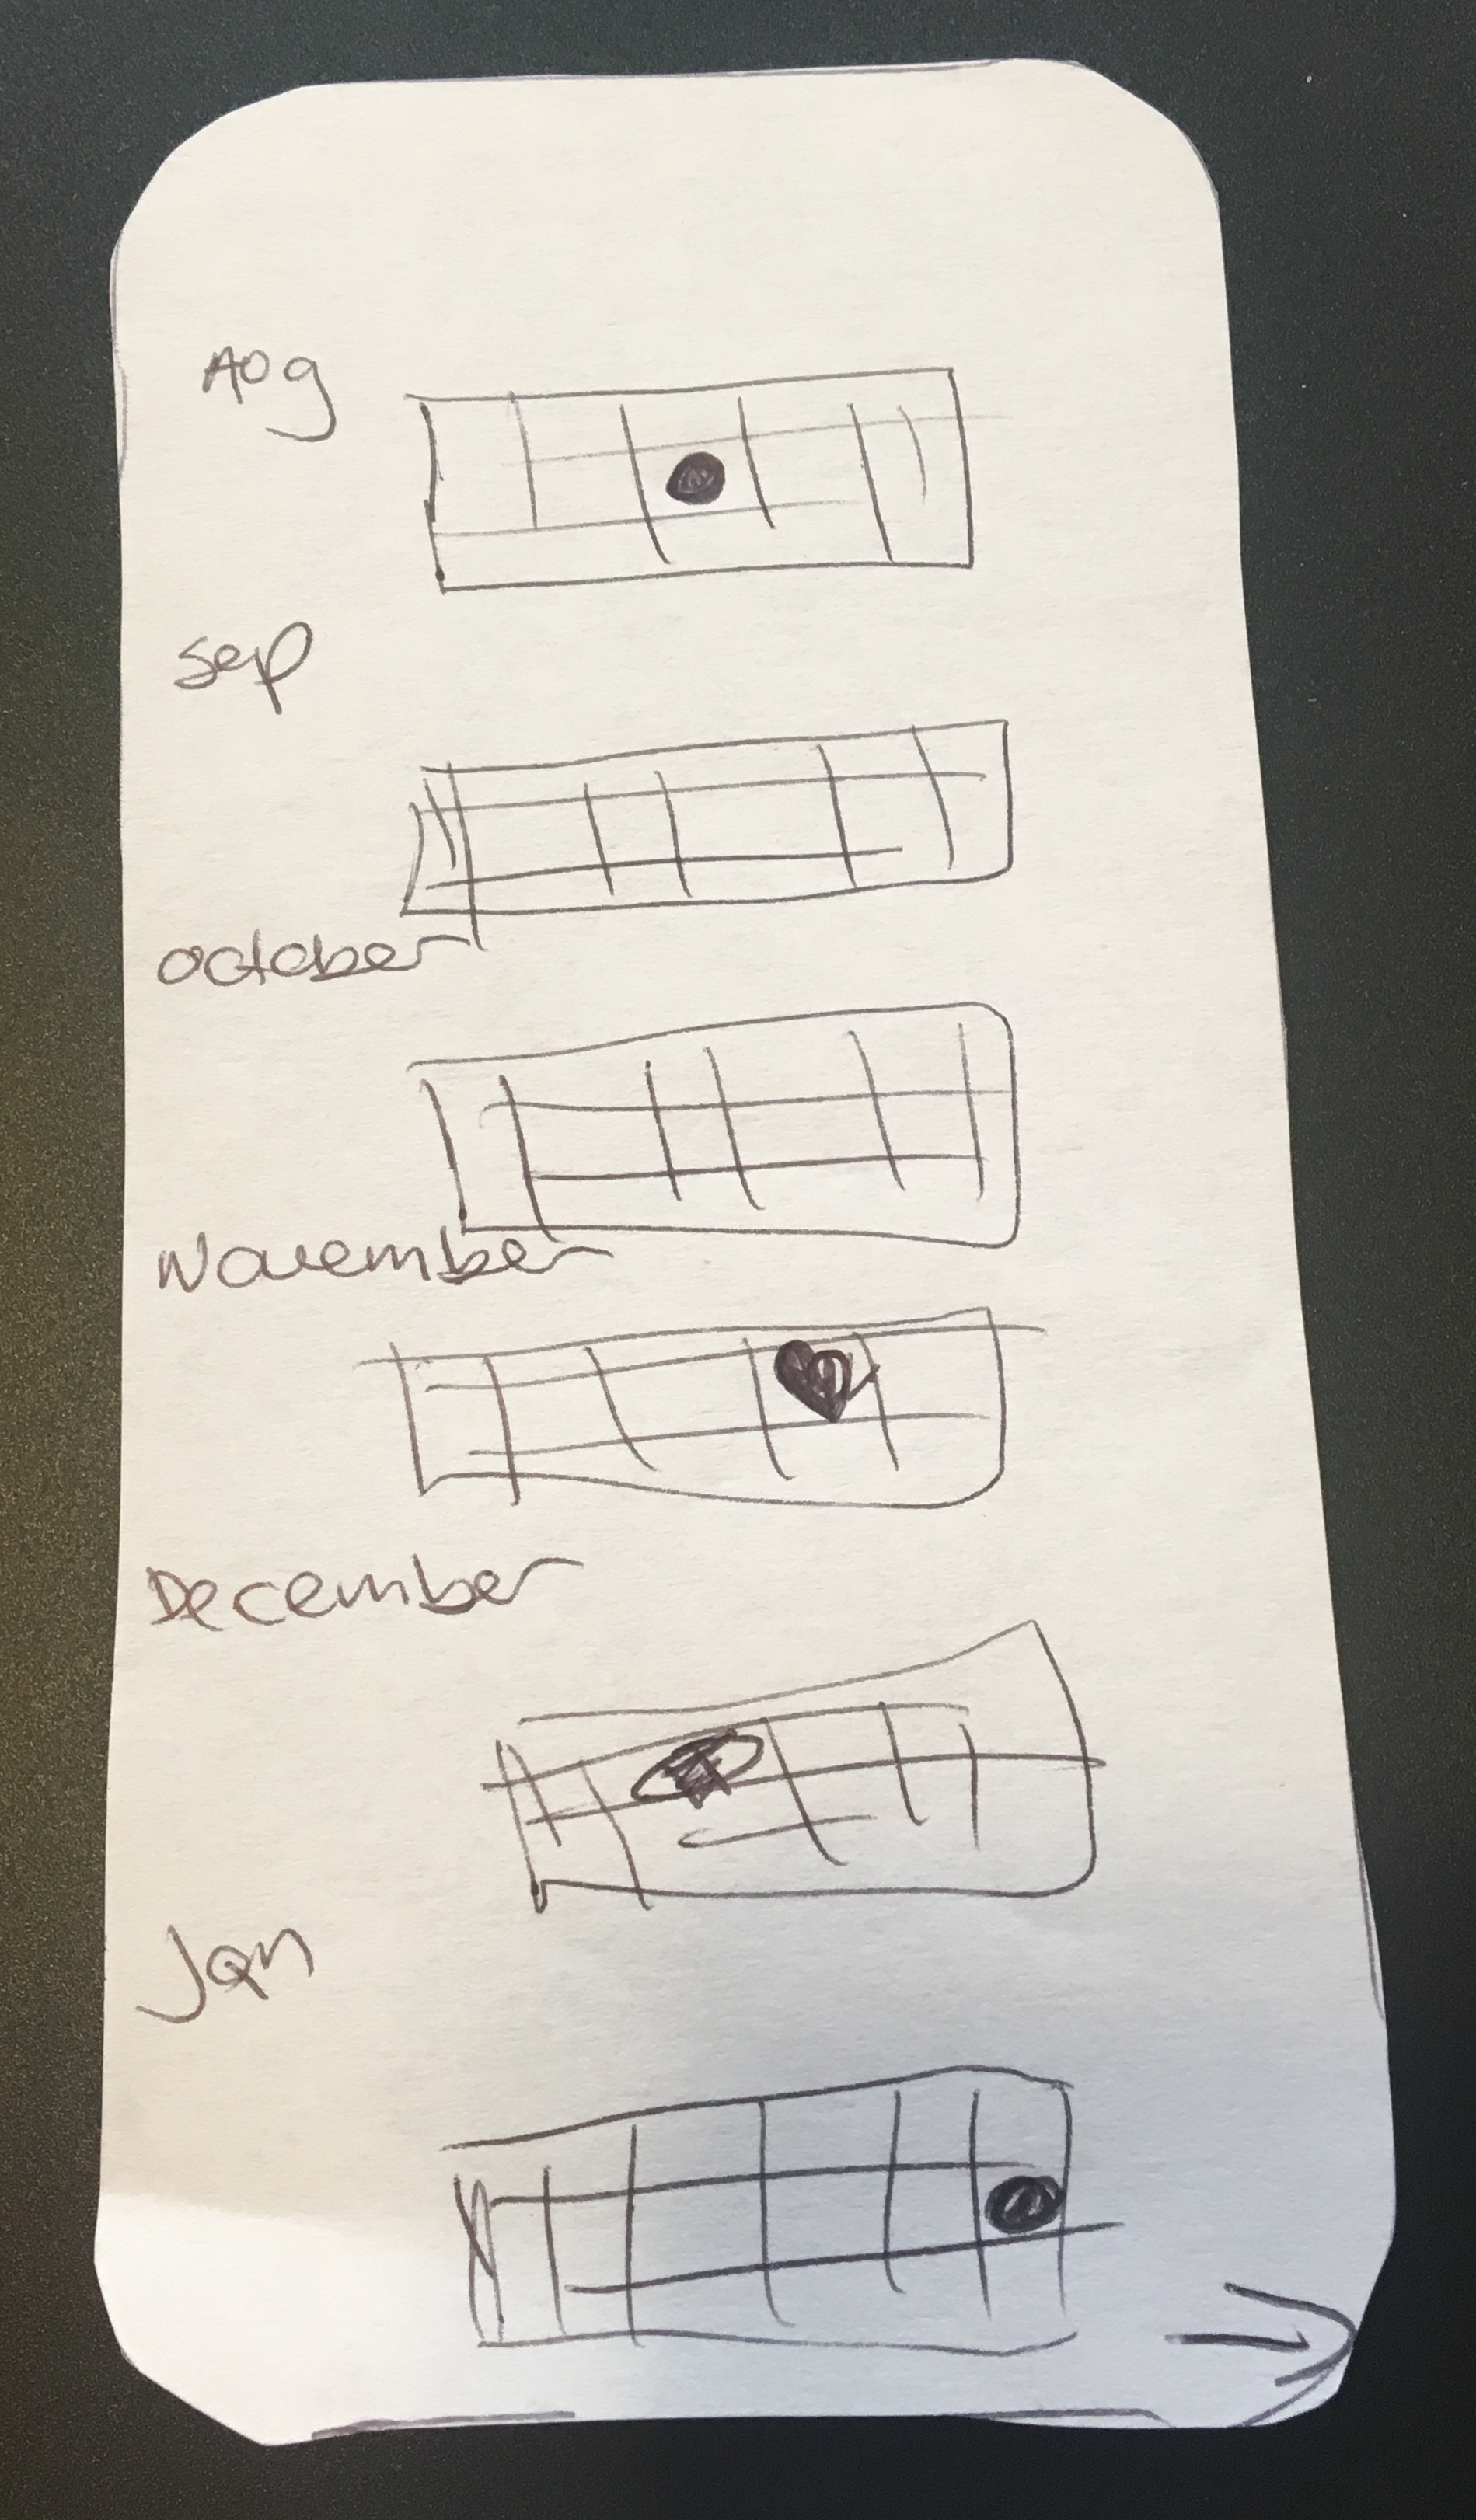 Aog
Sep
October
November
December
Jan